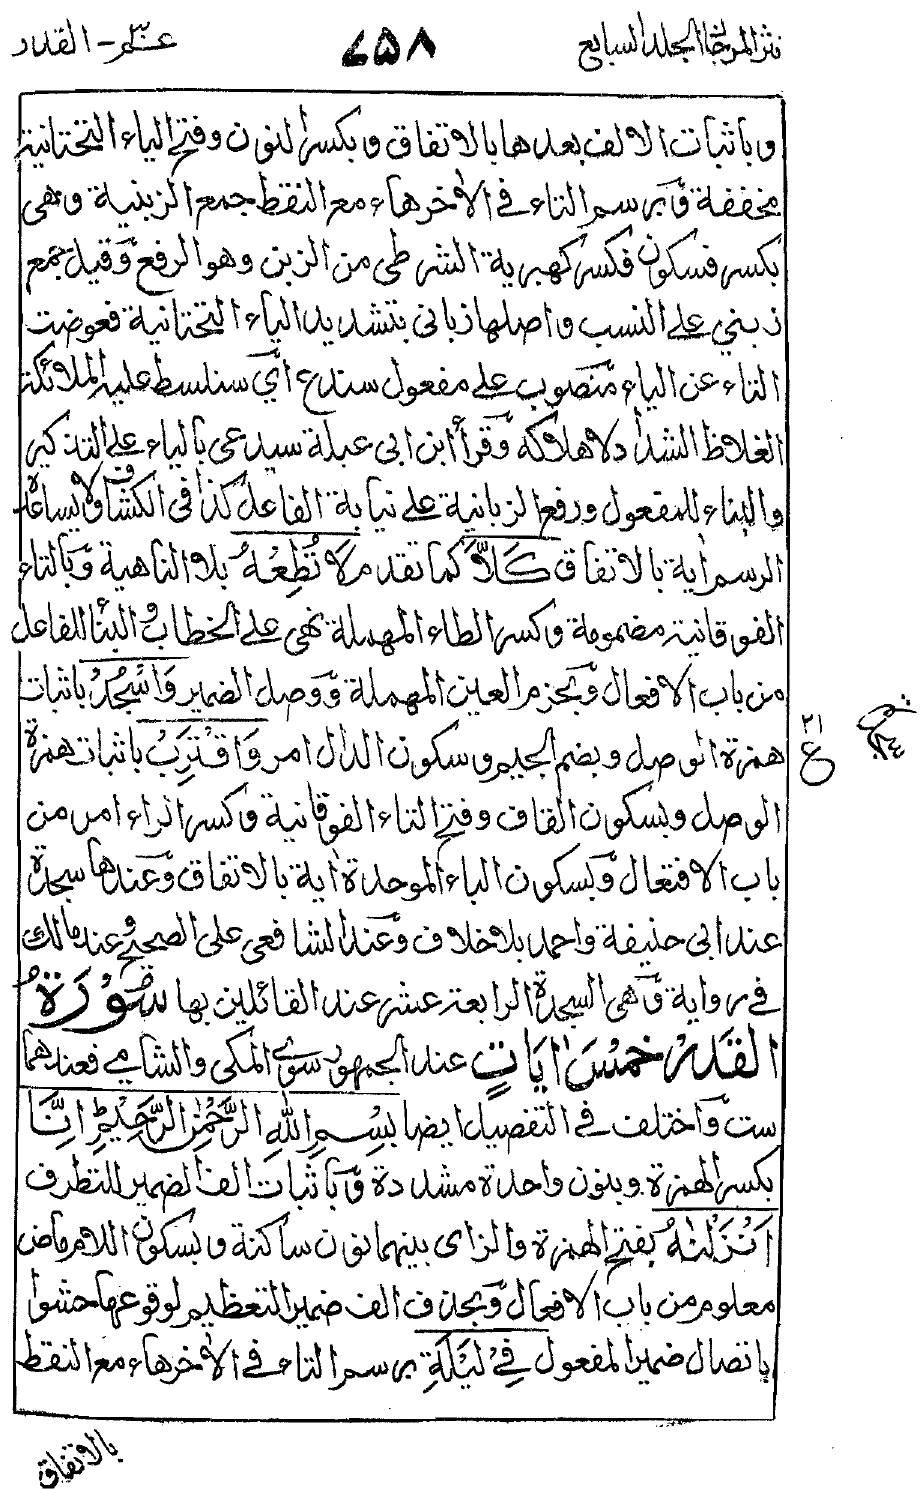 نثر المرجان المجلد السابع
٧٥٨
عم٣ - القدر
وباثبات الالف بعدها بالاتفاق وبكسر النون وفتح الياء التحتانية
مخففة وبرسم التاء في الاٰخر هاء مع النقط جمع الزبنية وهى
بكسر فسكون فكسر كهبرية الشرطى من الزبن وهو الرفع وقيل جمع
زبني على النسب واصلها زبانى بتشديد الياء التحتانية فعوضت
التاء عن الياء منصوب على مفعول سندع اي سنسلط عليه الملائكة
الغلاظ الشداد لاهلاكه وقرأ ابن ابى عبلة سيدعى بالياء على التذكير
والبناء للمفعول ورفع الزبانية على نيابة الفاعل كذا فى الكشاف ولا يساعده
الرسم اٰية بالاتفاق كَلَّا كما تقدم لَا تُطِعْهُ بلا الناهية وبالتاء
الفوقانية مضمومة وكسر الطاء المهملة نهى على الخطاب والبناء للفاعل
من باب الافعال وبجزم العين المهملة ووصل الضمير وَاسْجُدْ باثبات
همزة الوصل وبضم الجيم وسكون الدال امر وَاقْتَرِبْ باثبات همزة
الوصل وبسكون القاف وفتح التاء الفوقانية وكسر الراء امر من
باب الافتعال وبسكون الباء الموحدة اٰية بالاتفاق وعندها سجدة
عند ابى حنيفة واحمد بلا خلاف وعند الشافعى على الصحيح وعند مالك
في رواية وهى السجدة الرابعة عشر عند القائلين بها سُوْرَةُ
القَدْرِ خَمْسُ اٰيَاتٍ عند الجمهور سوى المكى والشامي فعندهما
ست واختلف في التفصيل ايضا بِسْمِ اللهِ الرَّحْمٰنِ الرَّحِيْمِ اِنَّا
بكسر الهمزة وبنون واحدة مشددة وباثبات الف الضمير للتطرف
اَنْزَلْنٰهُ بفتح الهمزة والزاى بينهما نون ساكنة وبسكون اللام ماض
معلوم من باب الافعال وبحذف الف ضمير التعظيم لوقوعها حشوا
باتصال ضمير المفعول فِيْ لَيْلَةِ برسم التاء في الاٰخر هاء مع النقط
٢١
ع
بالاتفاق